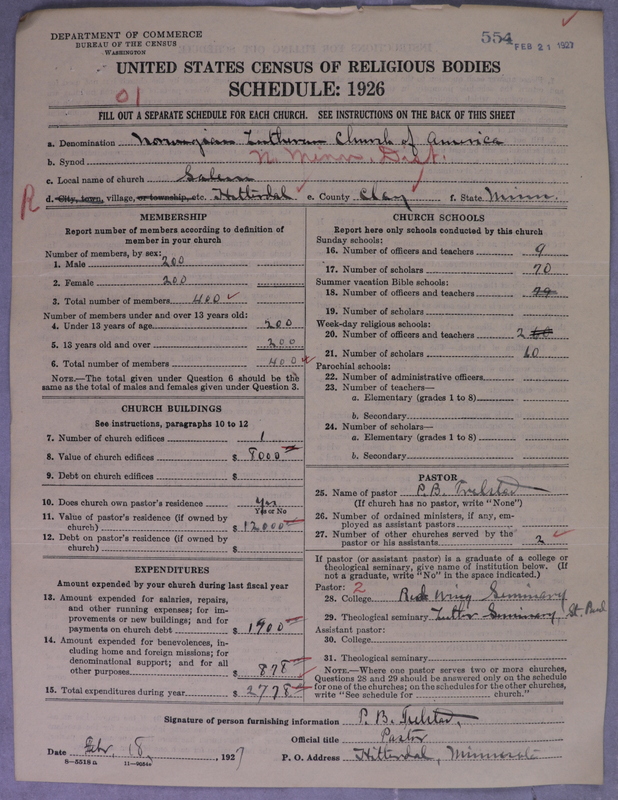 DEPARTMENT OF COMMERCE
BUREAU OF THE CENSUS
WASHINGTON
554
FEB 21 1927
UNITED STATES CENSUS OF RELIGIOUS BODIES
SCHEDULE: 1926
01
FILL OUT A SEPARATE SCHEDULE FOR EACH CHURCH. SEE INSTRUCTIONS ON THE BACK OF THIS SHEET
a. Denomination Norwegian Lutheran Church of America
b. Synod N. Minn. Dist.
c. Local name of church Salem
R d. City, town, village, or township, etc. Hitterdal e. County Clay f. State Minn.
MEMBERSHIP
Report number of members according to definition of
member in your church
Number of members, by sex:
1. Male 200
2. Female 200
3. Total number of members 400
Number of members under and over 13 years old:
4. Under 13 years of age 200
5. 13 years old and over 200
6. Total number of members 400
NOTE.—The total given under Question 6 should be the
same as the total of males and females given under Question 3.
CHURCH BUILDINGS
See instructions, paragraphs 10 to 12
7. Number of church edifices 1
8. Value of church edifices $ 8000
9. Debt on church edifices $
10. Does church own pastor's residence yes
Yes or No
11. Value of pastor's residence (if owned by
church) $ 12000
12. Debt on pastor's residence (if owned by
church) $
EXPENDITURES
Amount expended by your church during last fiscal year
13. Amount expended for salaries, repairs,
and other running expenses; for im-
provements or new buildings; and for
payments on church debt $ 1900
14. Amount expended for benevolences, in-
cluding home and foreign missions; for
denominational support; and for all
other purposes $ 878
15. Total expenditures during year $ 2778
CHURCH SCHOOLS
Report here only schools conducted by this church
Sunday schools:
16. Number of officers and teachers 9
17. Number of scholars 70
Summer vacation Bible schools:
18. Number of officers and teachers
19. Number of scholars
Week-day religious schools:
20. Number of officers and teachers 2 60
21. Number of scholars 60
Parochial schools:
22. Number of administrative officers
23. Number of teachers—
a. Elementary (grades 1 to 8)
b. Secondary
24. Number of scholars—
a. Elementary (grades 1 to 8)
b. Secondary
PASTOR
25. Name of pastor P. B. Trelstad
(If church has no pastor, write "None")
26. Number of ordained ministers, if any, em-
ployed as assistant pastors
27. Number of other churches served by the
pastor or his assistants 2
If pastor (or assistant pastor) is a graduate of a college or
theological seminary, give name of institution below. (If
not a graduate, write "No" in the space indicated.)
Pastor: 2
28. College Red Wing Seminary
29. Theological seminary Luther Seminary, St. Paul
Assistant pastor:
30. College
31. Theological seminary
NOTE.—Where one pastor serves two or more churches,
Questions 28 and 29 should be answered only on the schedule
for one of the churches; on the schedules for the other churches,
write "See schedule for church."
Signature of person furnishing information P. B. Trelstad,
Official title Pastor
Date Febr 18, 1927 P. O. Address Hitterdal, Minnesota
8—5518 a 11—9054